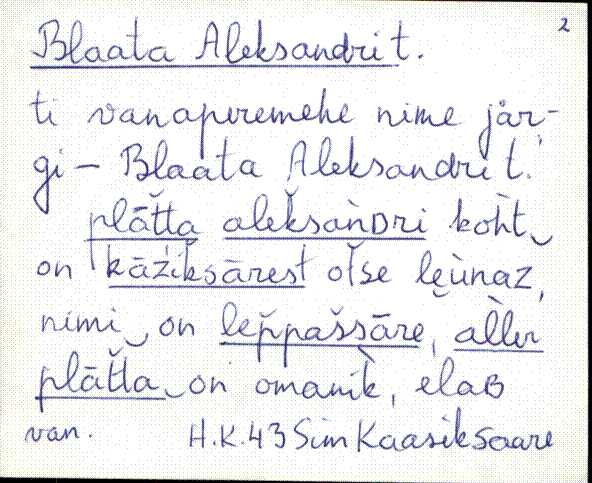 2
Blaata Aleksandri t.
ti vanaperemehe nime jär-
gi – Blaata Aleksandri t.
plāt̆ta alek̆šaǹdri koht
on kāžiksārest otse leùnaz,
nimi on lep̆pašsāre, aller
plāt̆ta on omanik, elaB
van. H.K.43 Sim Kaasiksaare